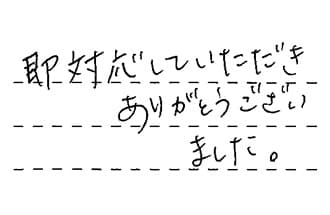 即対応していただき
ありがとうござい
ました。